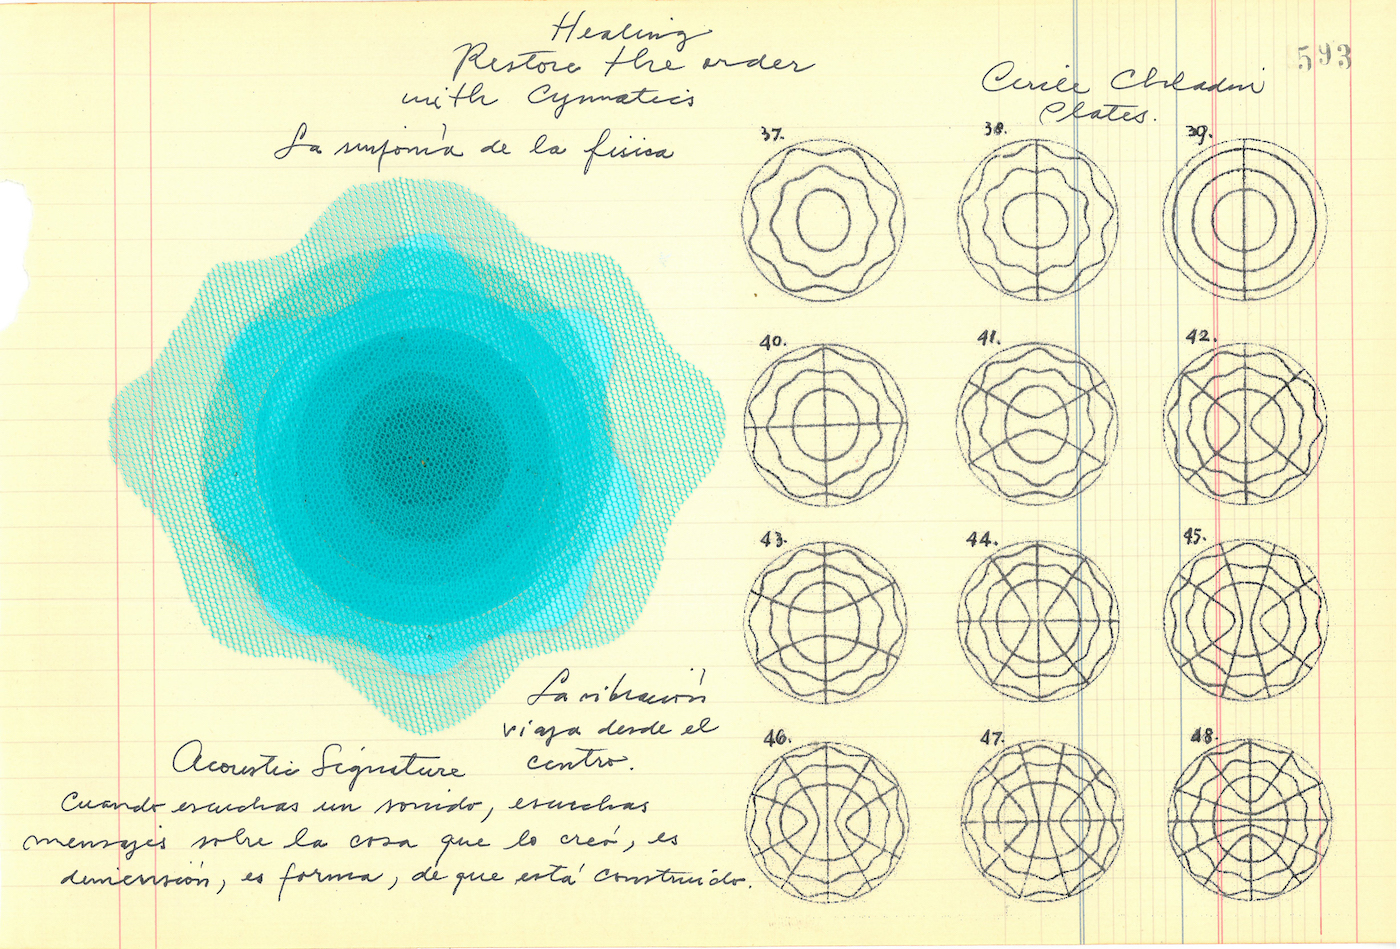 Healing
Restore the order
with Cymatics
La sinfonía de la física
593
Circle Chladni
Plates.
37.
38.
39.
40.
41.
42.
43.
44.
45.
46.
47.
48.
La vibración
viaja desde el
centro.
Acoustic Signature
Cuando escuchas un sonido, escuchas
mensajes sobre la cosa que lo creó, es
dimensión, es forma, de que está construido.